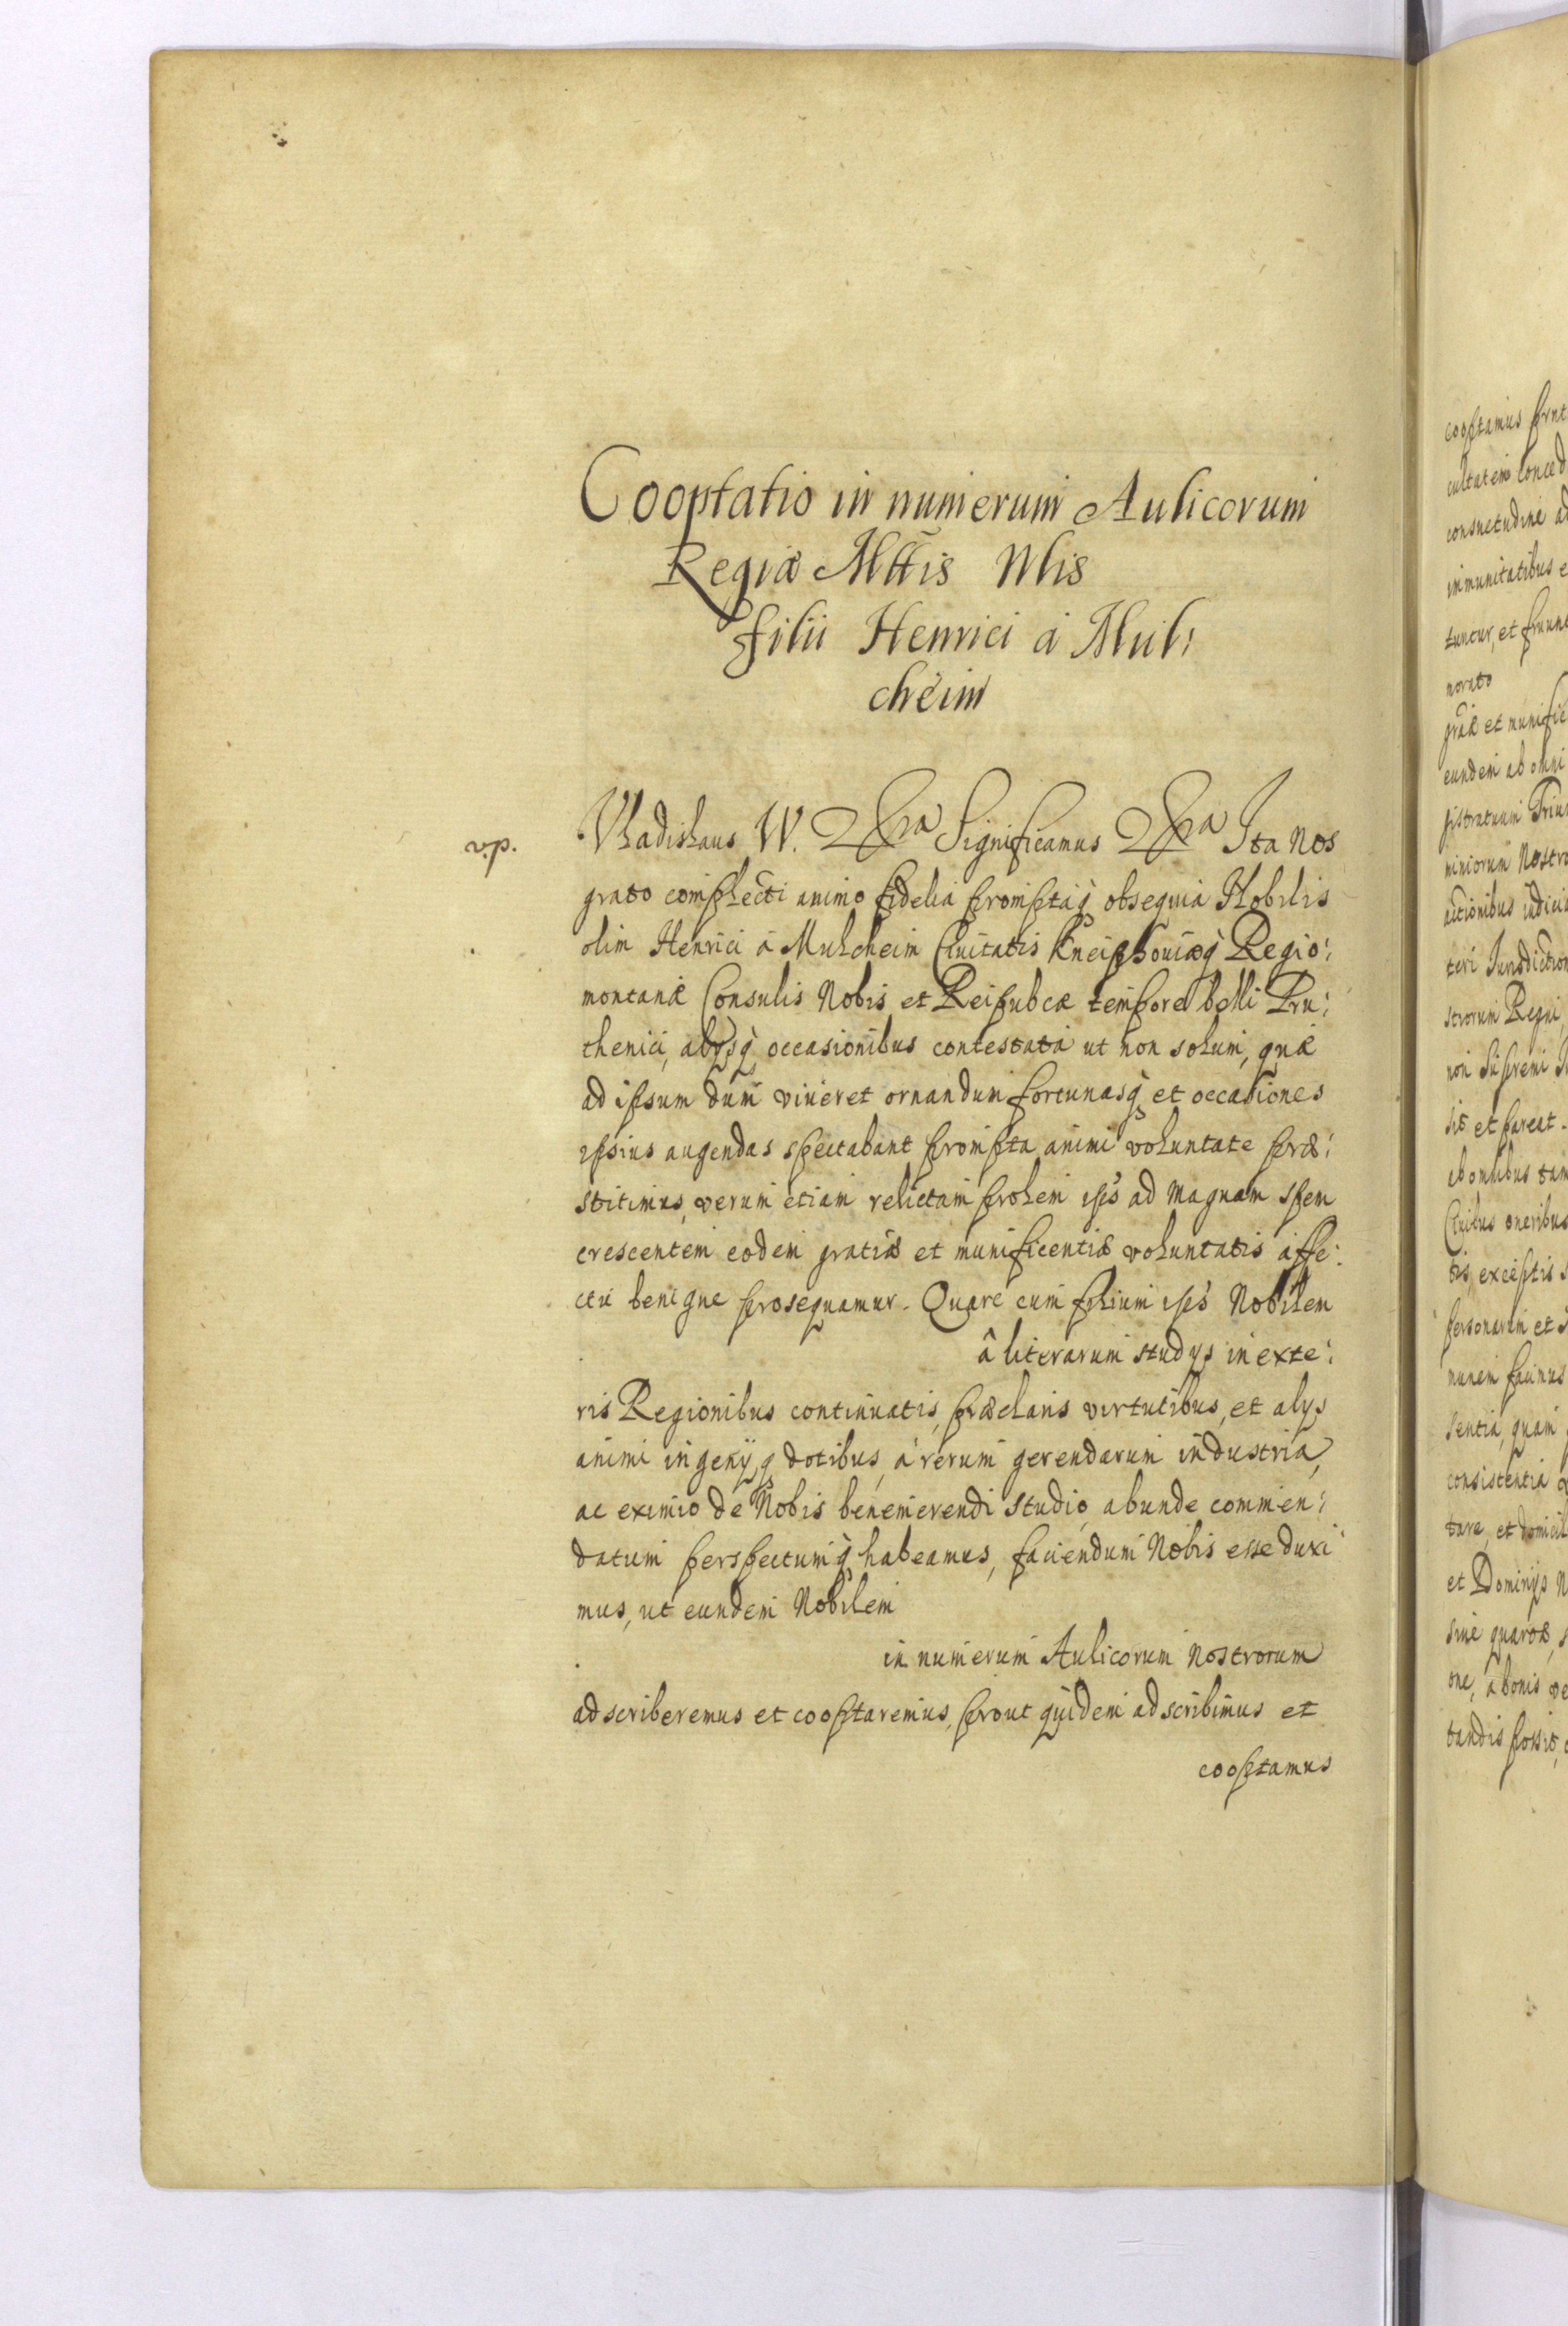 Cooptatio in numerum Aulicorum
Regiæ Mttis Nlis
filii Henrici à Mul:
cheim
v.p.
Vladislaus IV. &ra Significamus &ra Ita Nos
grato complecti animo fidelia promptaq obsequia Nobilis
olim Henrici à Mulcheim Civitatis Kneiphoviæq Regio:
montanæ Consulis Nobis et Reipubcæ tempore belli Pru:
thenici, alijsq occasionibus contestata ut non solum, quæ
ad ipsum dum viveret ornandum fortunasq et occasiones
ipsius augendas spectabant prompta animi voluntate præ:
stitimus, verum etiam relictam prolem ipss ad magnam spem
crescentem eodem gratiæ et munificentiæ voluntatis affe:
ctu benigne prosequamur. Quare cum filium ipss Nobilem
â literarum studijs in exte:
ris Regionibus continuatis, præclaris virtutibus, et alijs
animi ingenijq dotibus, à rerum gerendarum industria,
ac eximio de Nobis benemerendi studio, abunde commen:
datum perspectumq habeamus, faciendum Nobis esse duxi
mus, ut eundem Nobilem
in numerum Aulicorum Nostrorum
adscriberemus et cooptaremus, prout quidem adscribimus et
cooptamus
cooptamus
consuetudine
immunitatibus
tuntur, et
norato
eundem ab omni
miniorum
non Supremi
sit et pareat.
ab omnibus
oneribus
tis, exceptis
personarum et
sentia, quam
consistentia
tare, et
et Dominijs
one, à bonis
tandis possit,